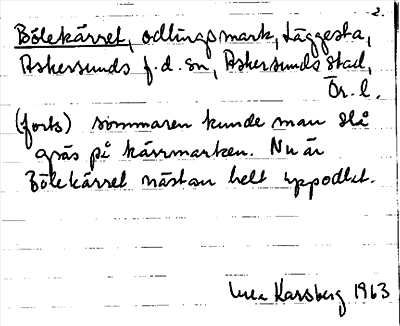 2.
Bölekärret, odlingsmark, Läggesta,
Askersunds f.d. sn, Askersunds stad,
Ör. l.
(forts) sommaren kunde man slå
gräs på kärrmarken. Nu är
Bölekärret nästan helt uppodlat.
Karsberg 1963